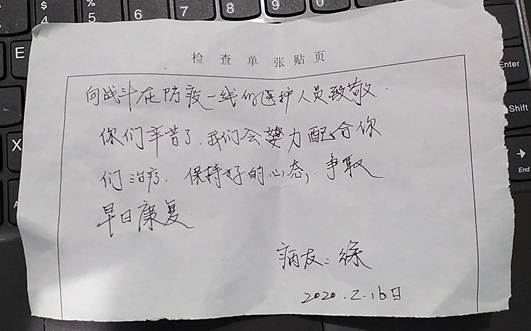 检查单张贴页
向战斗在防疫一线的医护人员致敬.
你们辛苦了.我们会努力配合你
们治疗.保持好的心态,争取
早日康复
病友:徐
2020.2.16日
$
4
%
5
6
&
7
8
9
E
A
Enter
Shift
End